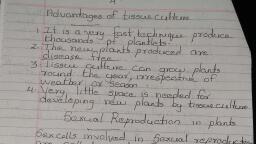 Advantages of tissue culture
1. It is a very fast technique produce
thousands of plantlets.
2. The new plants produced are
disease free.
3. Tissue culture can grow plants
round the year, irrespective of
weather or season.
4. Very little space is needed for
developing new plants by tissue culture
Sexual Reproduction in plants
Sex cells involved in sexual reproduction